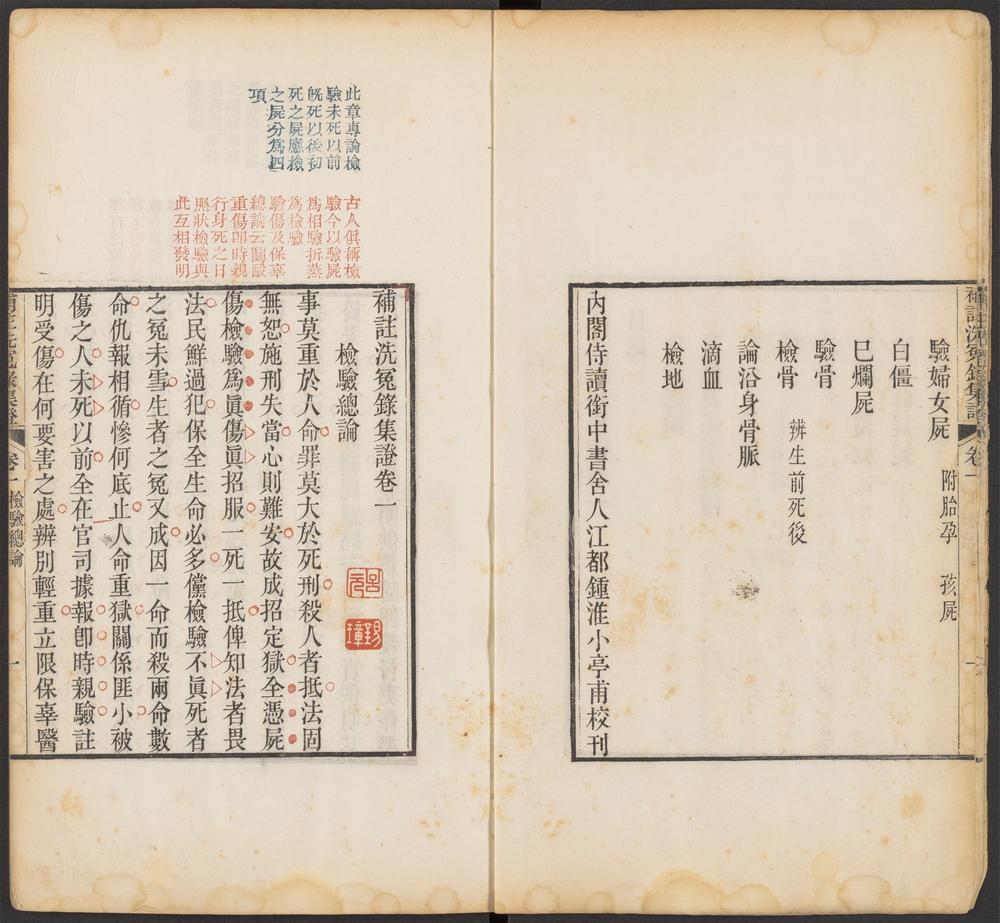 補註洗冤錄集證
卷一
一
驗婦女屍 附胎孕 孩屍
白僵
巳爛屍
驗骨
檢骨 辨生前死後
論沿身骨脈
滴血
檢地
內閣侍讀銜中書舍人江都鍾淮小亭甫校刊
此章專論檢
驗未死以前
旣死以後初
死之屍應檢
之屍分爲四
項
古人俱稱檢
驗今以驗屍
爲相驗拆蒸
爲檢驗
驗傷及保辜
總論云鬬毆
重傷卽時親
行身死之日
照狀檢驗與
此互相發明
補註洗冤錄集證卷一
檢驗總論
事莫重於人命罪莫大於死刑殺人者抵法固
無恕施刑失當心則難安故成招定獄全憑屍
傷檢驗爲眞傷眞招服一死一抵俾知法者畏
法民鮮過犯保全生命必多儻檢驗不眞死者
之冤未雪生者之冤又成因一命而殺兩命數
命仇報相循慘何底止人命重獄關係匪小被
傷之人未死以前全在官司據報卽時親驗註
明受傷在何要害之處辨別輕重立限保辜醫
補註洗冤錄集證
卷一 檢驗總論
一